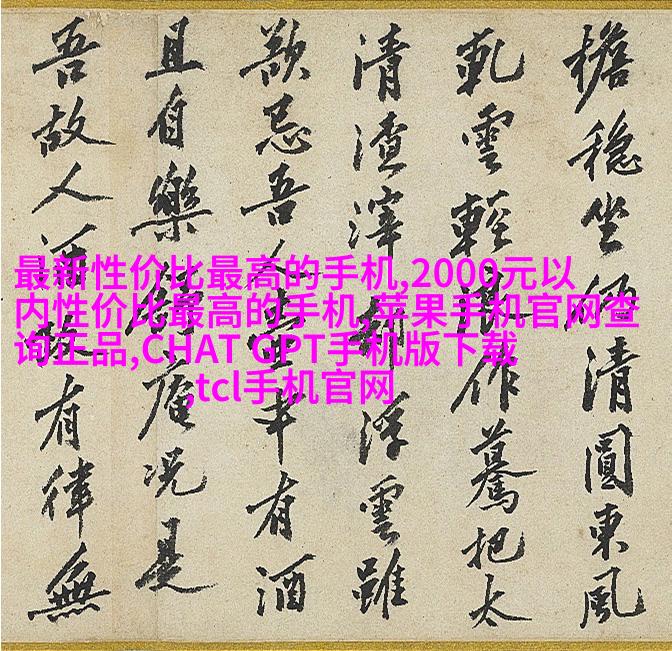 檐穩坐清圓東風
雲輕作驀把太
清渣滓浮雲雖
忌吾有酒
且自樂庵況是
吾故人故有律無
最新性价比最高的手机,2000元以
内性价比最高的手机,苹果手机官网查
询正品,CHAT GPT手机版下载
,tcl手机官网